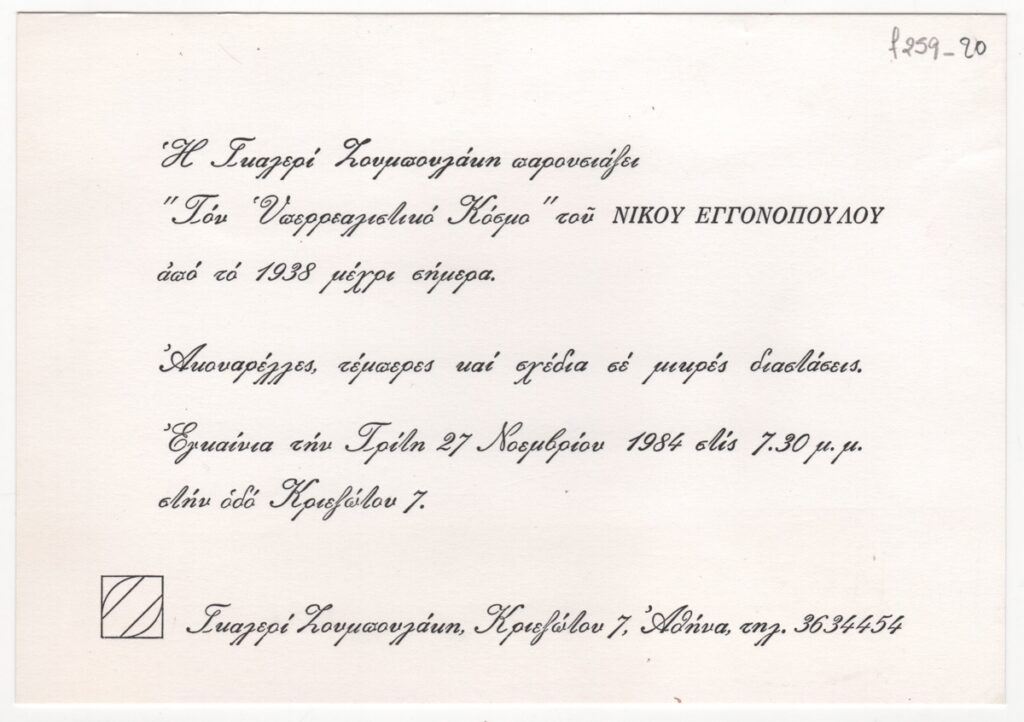 f259-20
Ἡ Γκαλερί Ζουμπουλάκη παρουσιάζει
"Τόν Ὑπερρεαλιστικό Κόσμο" τοῦ ΝΙΚΟΥ ΕΓΓΟΝΟΠΟΥΛΟΥ
ἀπό τό 1938 μέχρι σήμερα.
Ἀκουαρέλλες, τέμπερες καί σχέδια σέ μικρές διαστάσεις.
Ἐγκαίνια τήν Τρίτη 27 Νοεμβρίου 1984 στίς 7.30 μ.μ.
στήν ὁδό Κριεζώτου 7.
Γκαλερί Ζουμπουλάκη, Κριεζώτου 7, Ἀθήνα, τηλ. 3634454